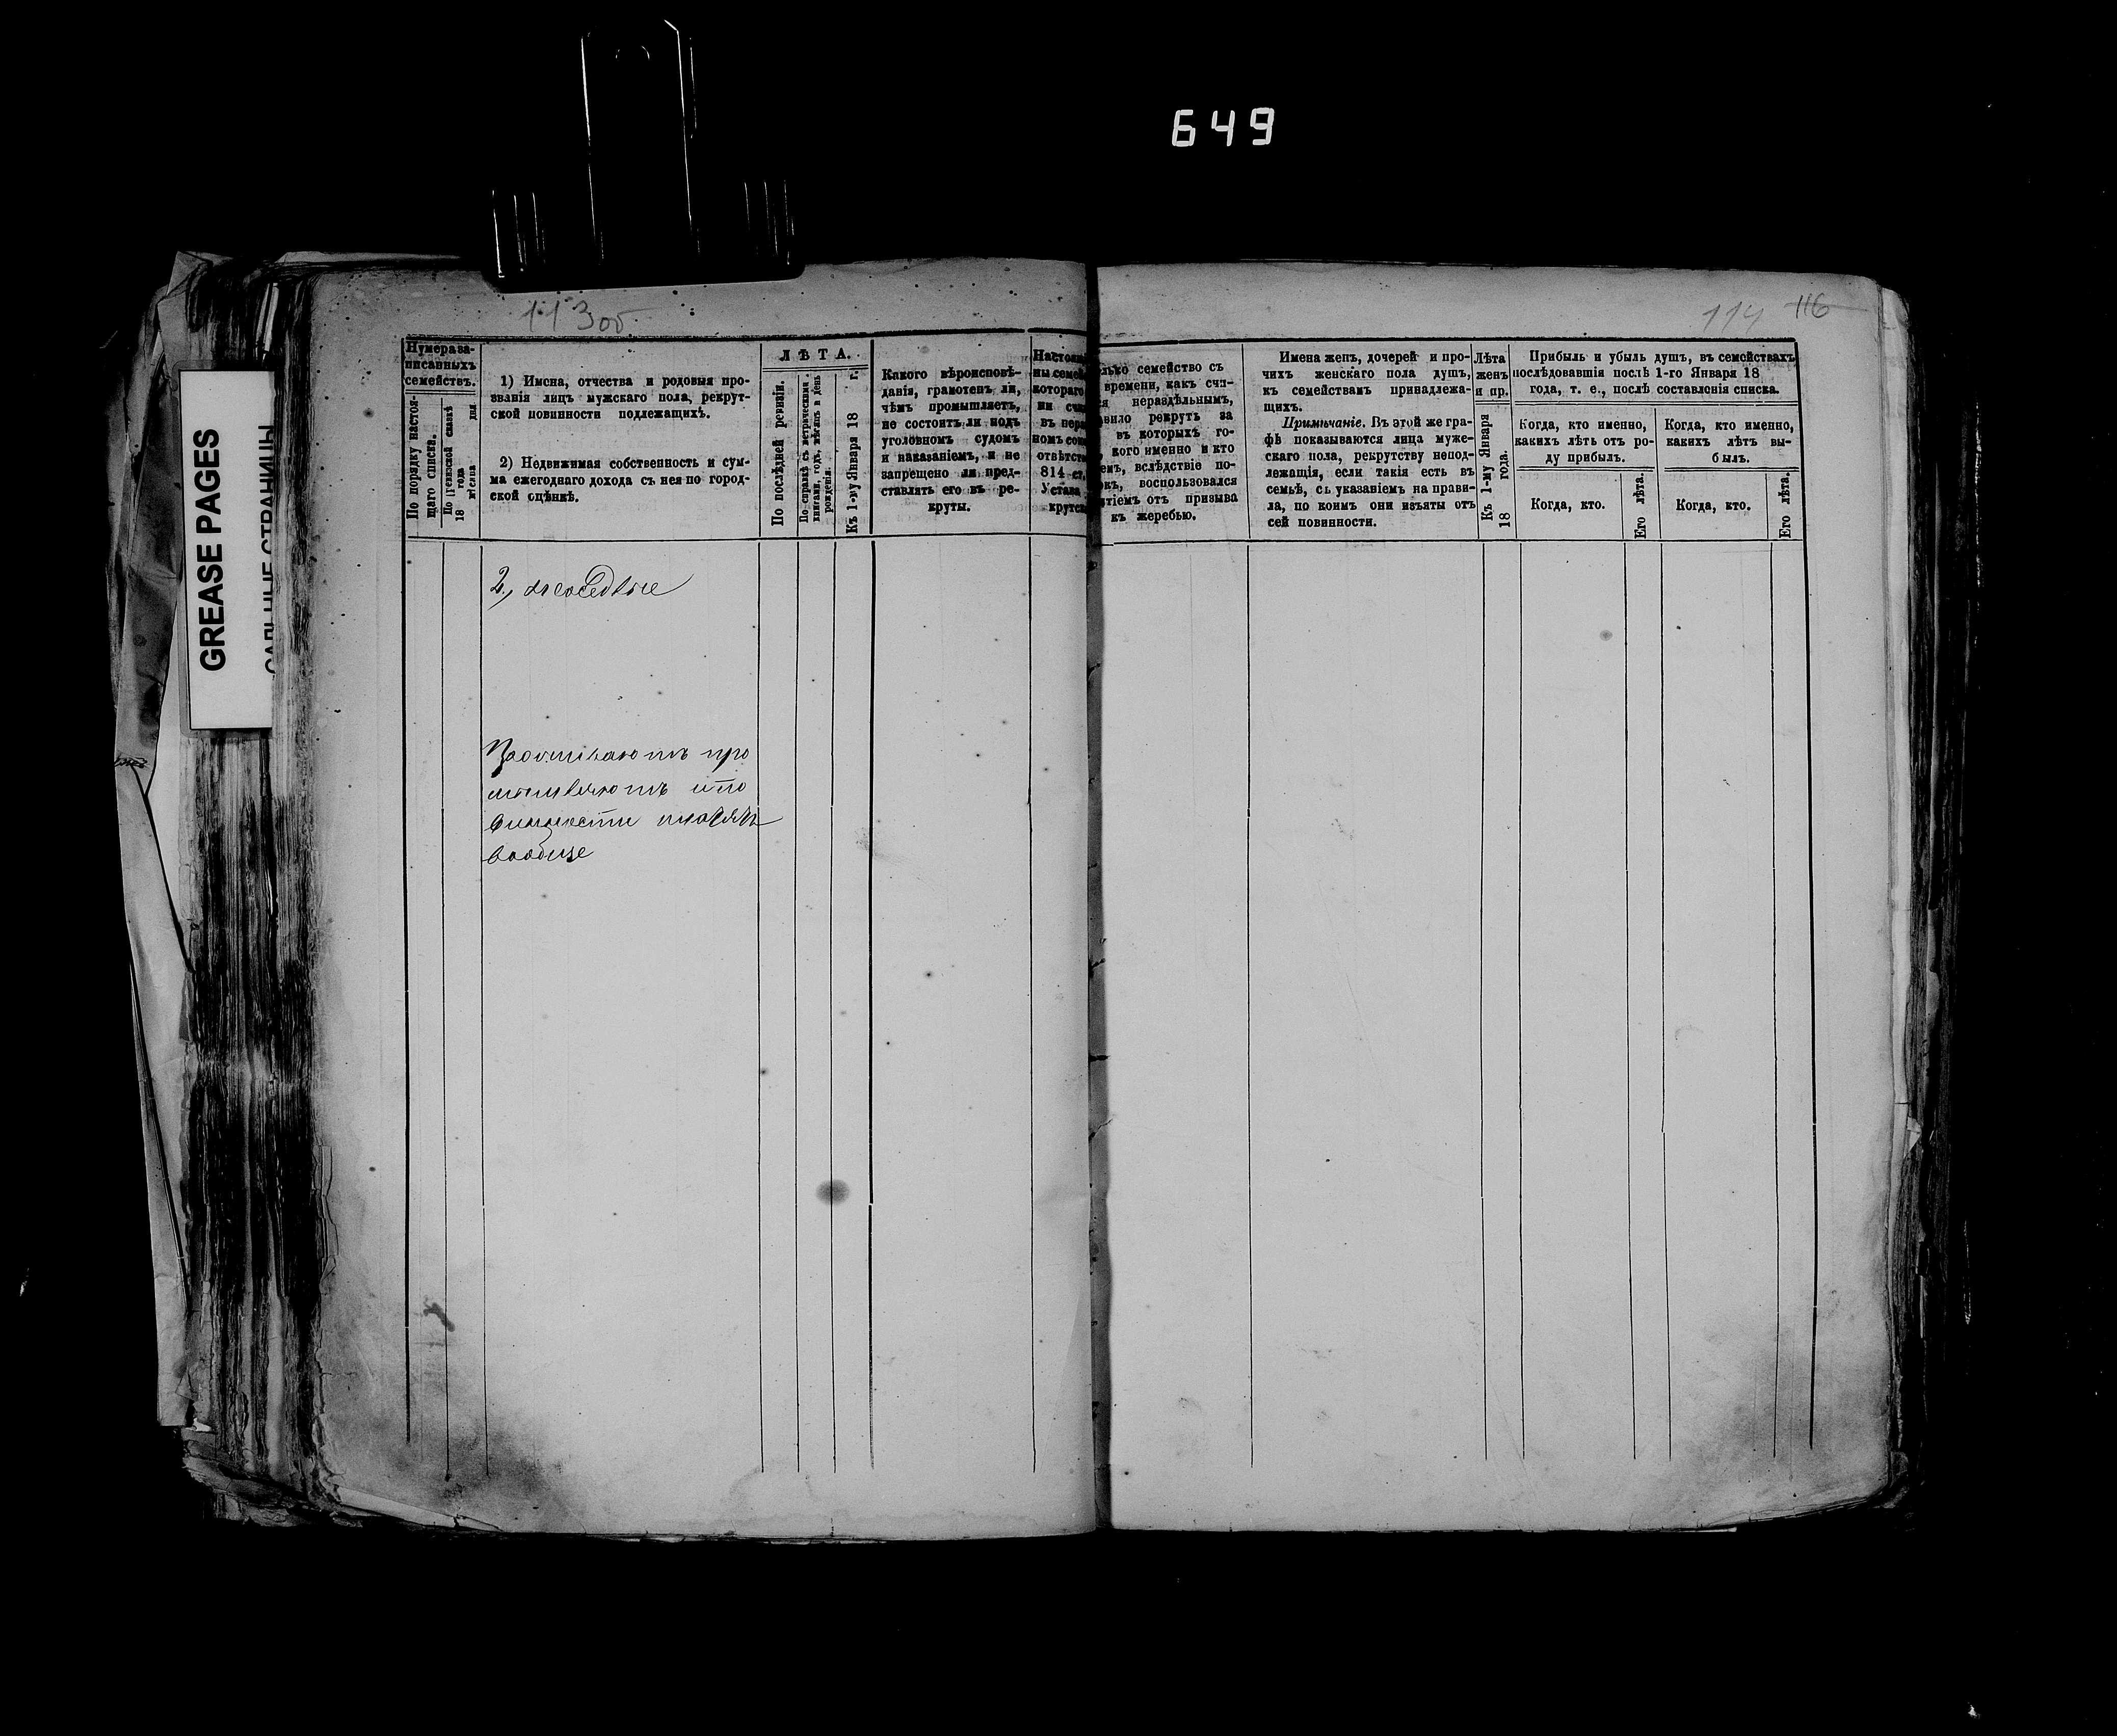 649
GREASE PAGES
САЛЬНЫЕ СТРАНИЦЫ
113 об
114 116
Нумера за-
писанныхъ
семействъ.
По порядку настоя-
щаго списка.
По ревизской сказкѣ
18 года
мѣсяца дня
1) Имена, отчества и родовыя про-
званія лицъ мужскаго пола, рекрут-
ской повинности подлежащихъ.
2) Недвижимая собственность и сум-
ма ежегоднаго дохода съ нея по город-
ской оцѣнкѣ.
ЛѢТА.
По послѣдней ревизіи.
По справкѣ съ метрическими
книгами, годъ, мѣсяцъ и день
рожденія.
Къ 1-му Января 18 г.
Какого вѣроисповѣ-
данія, грамотенъ ли,
чѣмъ промышляетъ,
не состоитъ ли подъ
уголовномъ судомъ
и наказаніемъ, и не
запрещено ли пред-
ставлять его въ ре-
круты.
Настоя
ны семей
котораго
ли счи
въ пер
номъ сос
отвѣтст
814 ст.
Устава
крутск
лько семейство съ
времени, какъ счи-
ся нераздѣльнымъ,
авило рекрутъ за
въ которыхъ го-
кого именно и кто
емъ, вслѣдствіе по-
окъ, воспользовался
тіемъ отъ призыва
къ жеребью.
Имена женъ, дочерей и про-
чихъ женскаго пола душъ,
къ семействамъ принадлежа-
щихъ.
Примѣчаніе. Въ этой же гра-
фѣ показываются лица муже-
скаго пола, рекрутству непод-
лежащія, если такія есть въ
семьѣ, съ указаніемъ на прави-
ла, по коимъ они изъяты отъ
сей повинности.
Лѣта
женъ
и пр.
Къ 1-му Января
18 года.
Прибыль и убыль душъ, въ семействахъ
послѣдовавшія послѣ 1-го Января 18
года, т. е., послѣ составленія списка.
Когда, кто именно,
какихъ лѣтъ отъ ро-
ду прибылъ.
Когда, кто.
Его лѣта.
Когда, кто именно,
какихъ лѣтъ вы-
былъ.
Когда, кто.
Его лѣта.
2,
Проживаютъ про
мышляютъ и по
винности
вообще